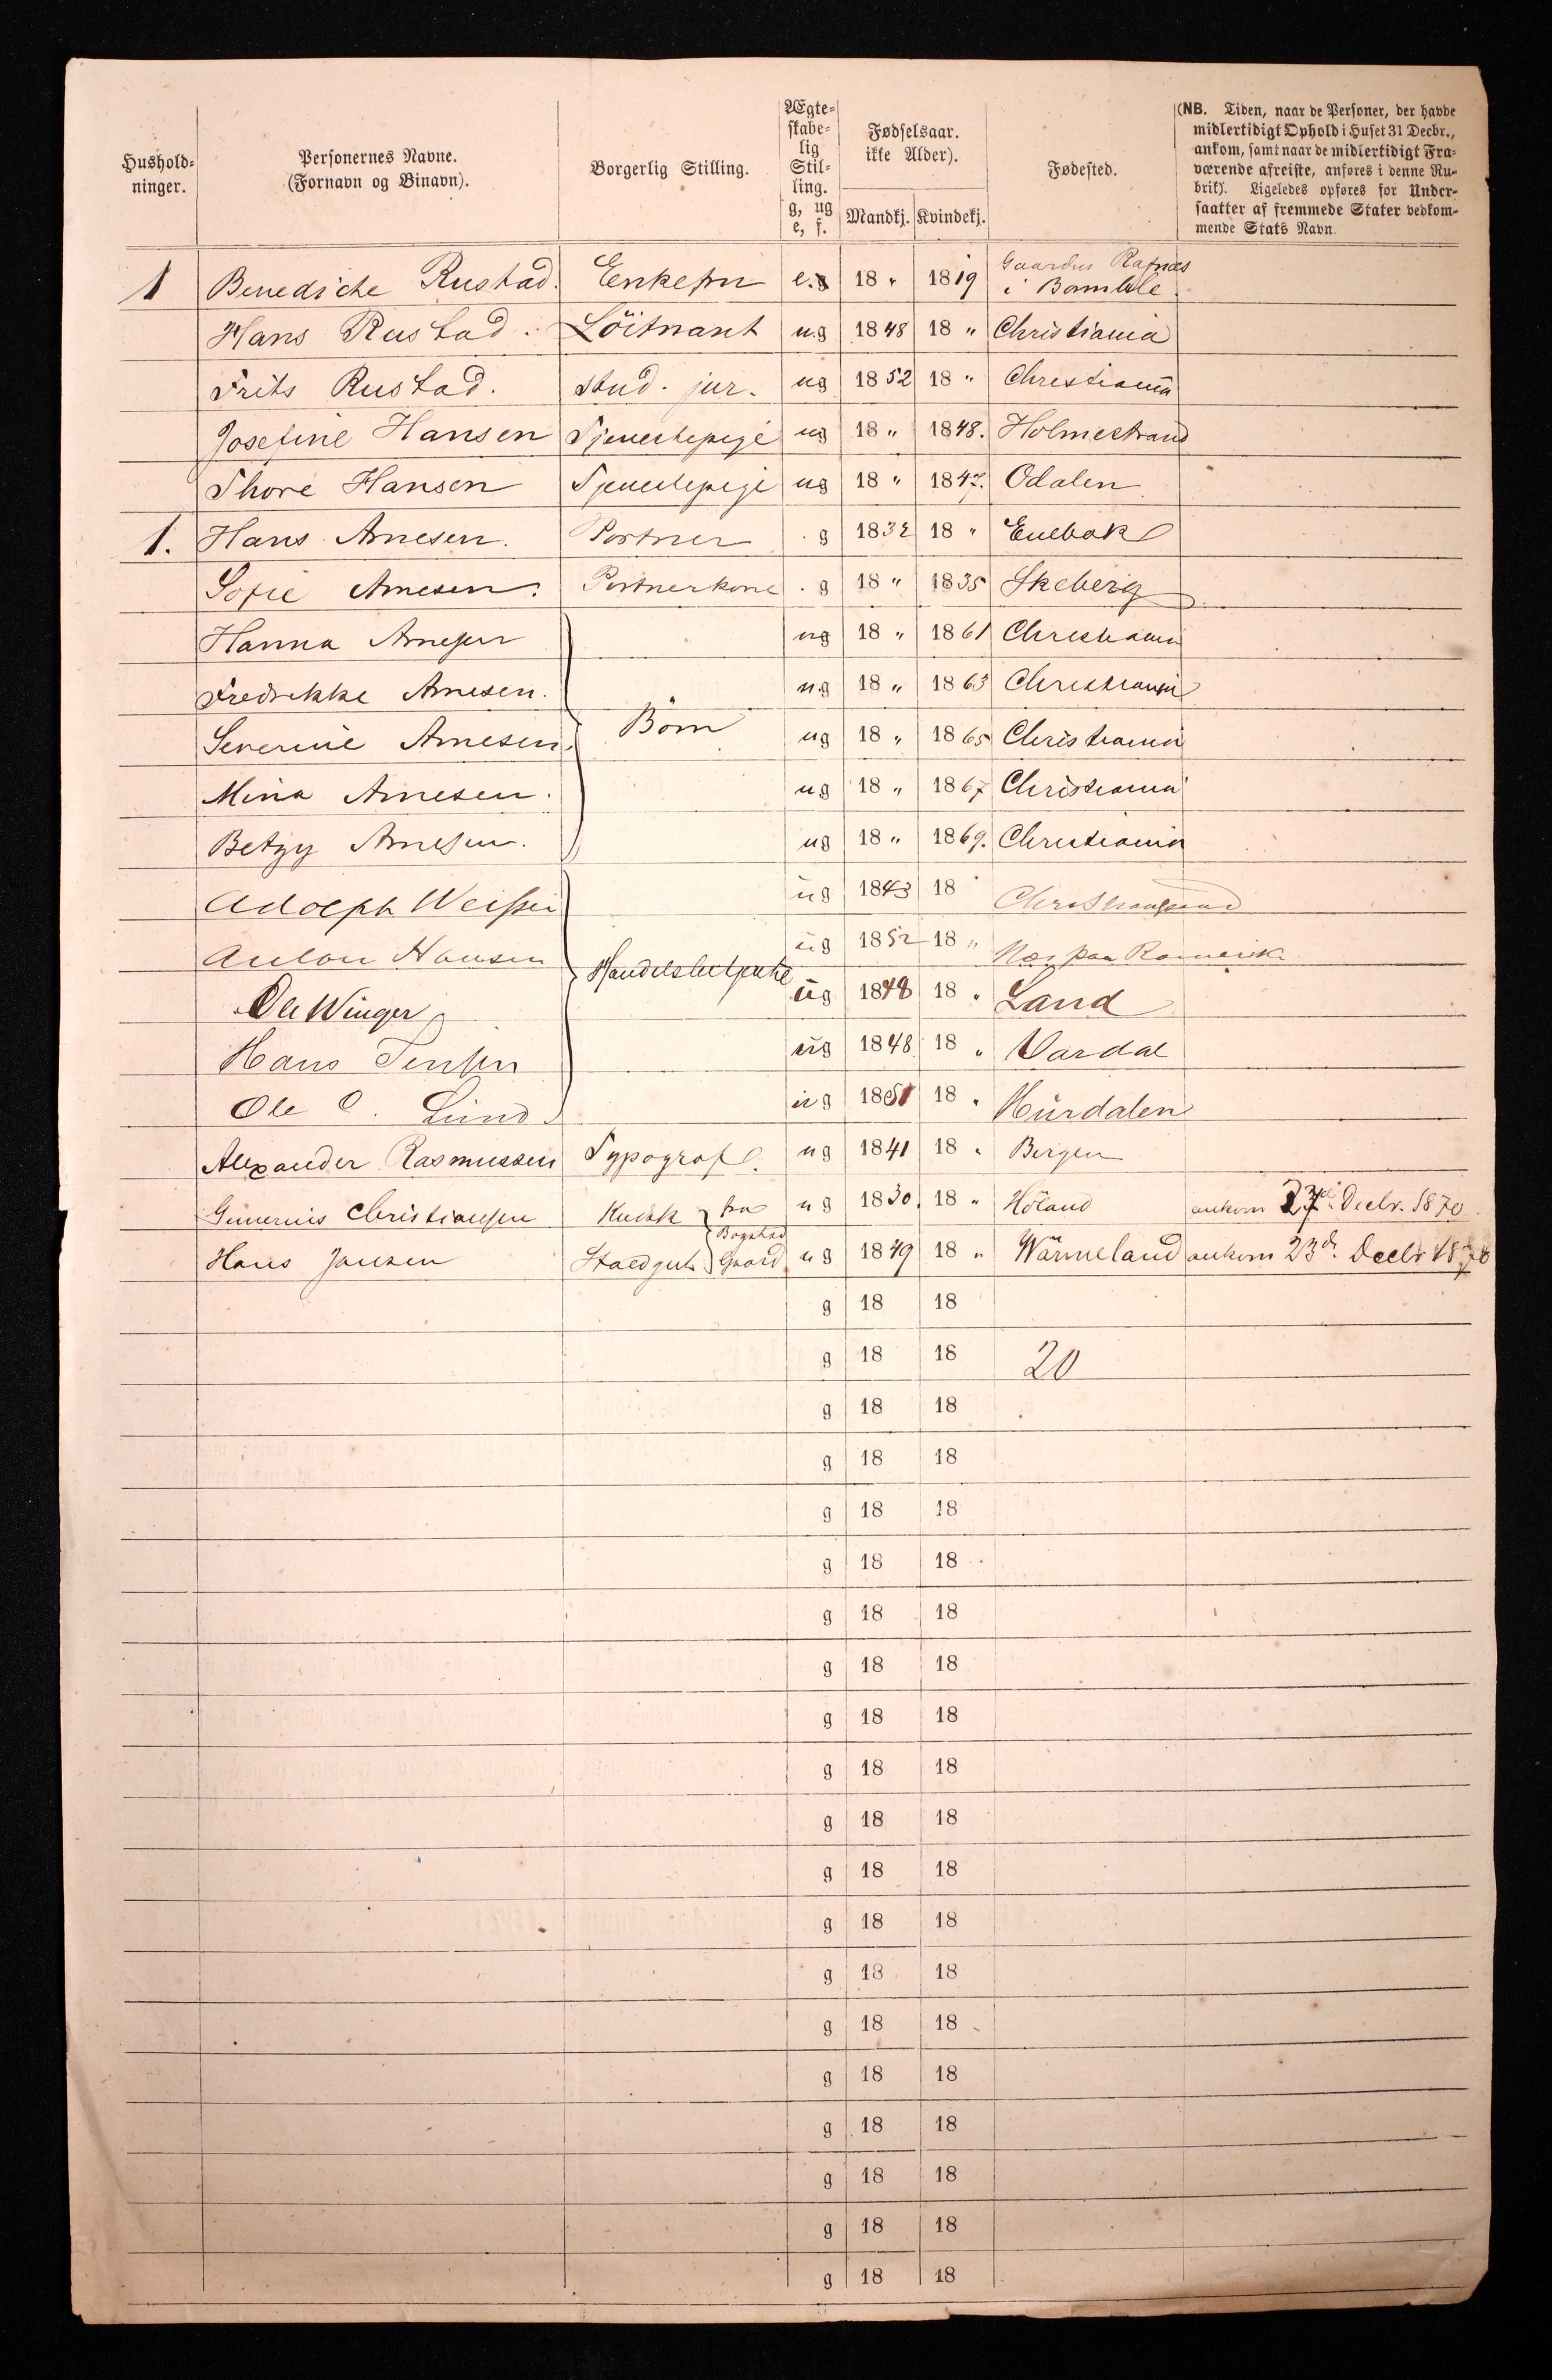 Hushold-
ninger.
Personernes Navne.
(Fornavn og Binavn).
Borgerlig Stilling.
Ægte-
skabe-
lig
Stil-
ling.
g, ug
e, f.
Fødselsaar.
ikke Alder).
Mandkj. Kvindekj.
Fødested.
(NB. Tiden, naar de Personer, der havde
midlertidigt Ophold i Huset 31 Decbr.,
ankom, samt naar de midlertidigt Fra-
værende afreiste, anføres i denne Ru-
brik). Ligeledes opføres for Under-
saatter af fremmede Stater vedkom-
mende Stats Navn.
1 Benedicte Rustad. Enkefru e. 18 " 1819 Gaarden Rafnæs i Bamble.
Hans Rustad. Löitnant ug 1848 18 " Christiania
Frits Rustad. stud. jur. ug 1852 18 " Christiania
Josefine Hansen Tjenestepige ug 18 " 1848. Holmestrand
Thore Hansen Tjenestepige ug 18 " 1847. Odalen
1. Hans Arnesen. Portner g 1832 18 " Enebak
Sofie Arnesen. Portnerkone g 18 " 1835 Skeberg
Hanna Arnesen ug 18 " 1861 Christiania
Fredrikke Arnesen. ug 18 " 1863 Christiania
Severine Arnesen. Börn ug 18 " 1865 Christiania
Mina Arnesen. ug 18 " 1867 Christiania
Betzy Arnesen. ug 18 " 1869. Christiania
Adolph ug 1843 18 Christiansand
Anton Hansen Handelsbetjente ug 1852 18 " Næs paa Romerik
Ole Winger ug 1848 18 " Land
Hans Jensen ug 1848 18 " Vardal
Ole C. Lund ug 1851 18 " Hurdalen
Alexander Rasmussen Typograf. ug 1841 18 " Bergen
Christiansen Kudsk fra ug 1830. 18 " Höland ankom 27de Decbr. 1870
Hans Jansen Staldgut Bogstad Gaard ug 1849 18 " Wärmeland ankom 23d. Decbr 1870
g 18 18
g 18 18 20
g 18 18
g 18 18
g 18 18
g 18 18
g 18 18
g 18 18
g 18 18
g 18 18
g 18 18
g 18 18
g 18 18
g 18 18
g 18 18
g 18 18
g 18 18
g 18 18
g 18 18
g 18 18